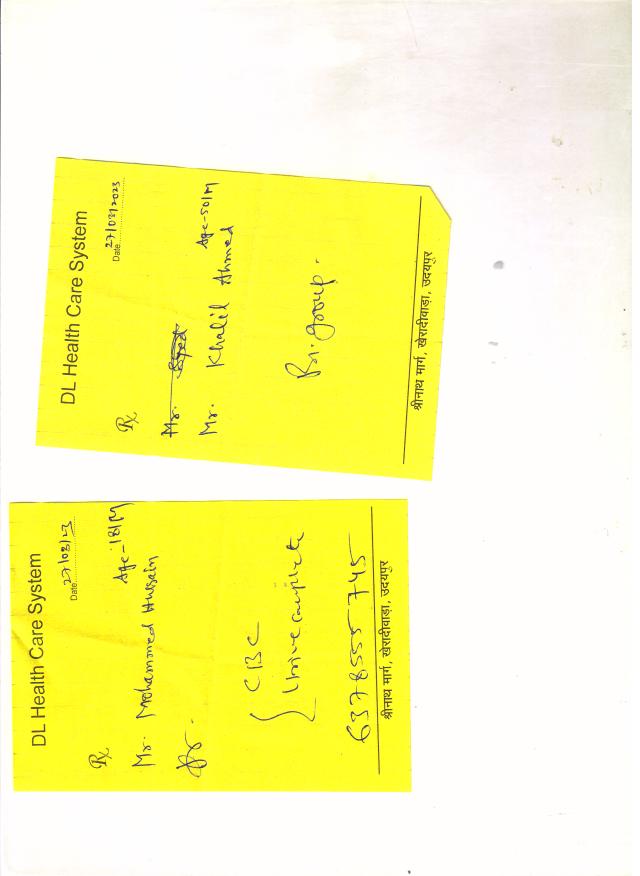 DL Health Care System
Date 27/03/2023
Rx
Mr.
Mr. Khalil Ahmed Age-50/M
group.
श्रीनाथ मार्ग, खेरादीवाड़ा, उदयपुर
DL Health Care System
Date 27/03/23
Rx
Mr. Mohammed Hussain Age-18/M
CBC
Urine complete
6378555745
श्रीनाथ मार्ग, खेरादीवाड़ा, उदयपुर